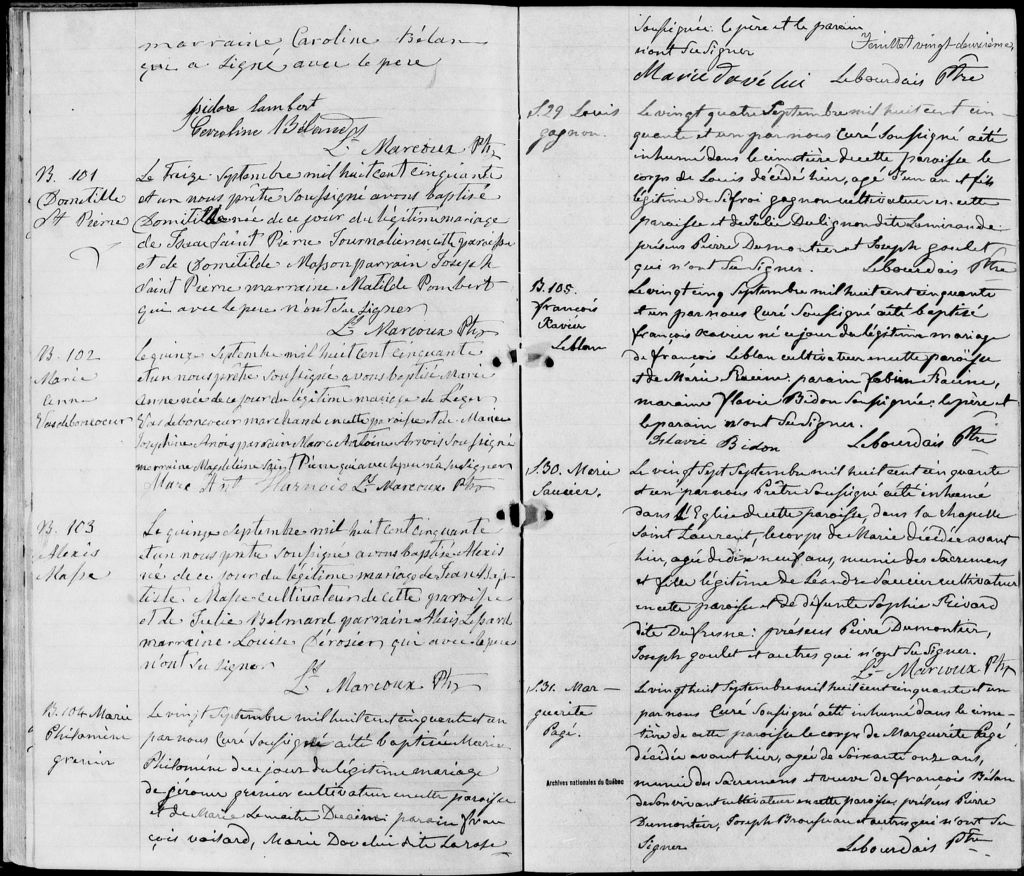 marraine, Caroline Bélan
qui a signé avec le père
isidore lambert
Caroline Béland
Ls. Marcoux Ptre
B. 101
Domitille
St Pierre
Le Treize Septembre mil huit cent cinquante
et un nous prêtre soussigné avons baptisé
Domitille née de ce jour du légitime mariage
de Saint Pierre Journalier en cette paroisse
et de Dometilde Masson parrain Joseph
Saint Pierre marraine Matilde
qui avec le pere n'ont su signer
Ls. Marcoux Ptre
B. 102
Marie
Anne
Vasdeboncoeur
Le quinze Septembre mil huit cent cinquante
et un nous prêtre soussigné avons baptisé Marie
Anne née de ce jour du légitime mariage de Léger
Vasdeboncoeur marchand en cette paroisse et de Marie
Josephine Arnois parrain Marc Antoine Arnois soussigné
marraine Magdeleine Saint Pierre qui avec le pere n'a su signer
Marc Ant Harnois Ls. Marcoux Ptre
B. 103
Alexis
Masse
Le quinze septembre mil huit cent cinquante
et un nous prêtre soussigné avons baptisé Alexis
né de ce jour du légitime mariage de Jean Bap-
tiste Masse cultivateur de cette paroisse
et de Julie Belmard parrain Alexis Lessard
marraine Louise Dérosier qui avec le pere
n'ont su signer
Ls. Marcoux Ptre
B. 104 Marie
Philomène
grenier
Le vingt Septembre mil huit cent cinquante et un
par nous Curé soussigné a été baptisée Marie
Philomène du jour du légitime mariage
de gérome grenier cultivateur en cette paroisse
et de Marie Lemaitre parain fran
çois voisard, Marie Davelui dite Larose
soussignée: le père et le parain
n'ont su signer
Feuillet vingt-deuxième,
Marie Davélui Lebourdais Ptre
S. 29 Louis
gagnon.
Le vingt quatre Septembre mil huit cent cin-
quante et un par nous Curé soussigné a été
inhumé dans le cimetière de cette paroisse le
corps de Louis décédé hier, agé d'un an et fils
légitime de Sifroi gagnon cultivateur en cette
paroisse et de Julie Dulignon dite Lamirande
présens Pierre Dumontier et Joseph goulet
qui n'ont su signer. Lebourdais Ptre
B. 105.
françois
Xavier
Leblanc
Le vingt cinq Septembre mil huit cent cinquante
et un par nous Curé soussigné a été baptisé
françois Xavier né ce jour du légitime mariage
de françois Leblanc cultivateur en cette paroisse
et de Marie Racine: parain fabien Racine,
maraine flavie Bidon soussignée: le père et
le parain n'ont su signer.
Flavie Bidon Lebourdais Ptre
S. 30. Marie
Saucier.
Le vingt Sept Septembre mil huit cent cinquante
et un par nous Prêtre soussigné a été inhumé
dans l'Eglise de cette paroisse, dans la chapelle
Saint Laurent, le corps de Marie décédée avant
hier, agée de dix neuf ans, munie des sacremens
et fille légitime de Léandre Saucier cultivateur
en cette paroisse et de défunte Sophie Rivard
dite Dufresne: présens Pierre Dumontier,
Joseph goulet et autres qui n'ont su signer.
Ls. Marcoux Ptre
S. 31. Mar-
guerite
Pagé.
Le vingt huit Septembre mil huit cent cinquante et un
par nous Curé soussigné a été inhumé dans le cime-
tière de cette paroisse le corps de Marguerite Pagé
décédée avant hier, agée de soixante onze ans,
munie des sacremens et veuve de françois Bélan
de son vivant cultivateur en cette paroisse, présens Pierre
Dumontier, Joseph Brousseau et autres qui n'ont su
signer Lebourdais Ptre
Archives nationales du Québec